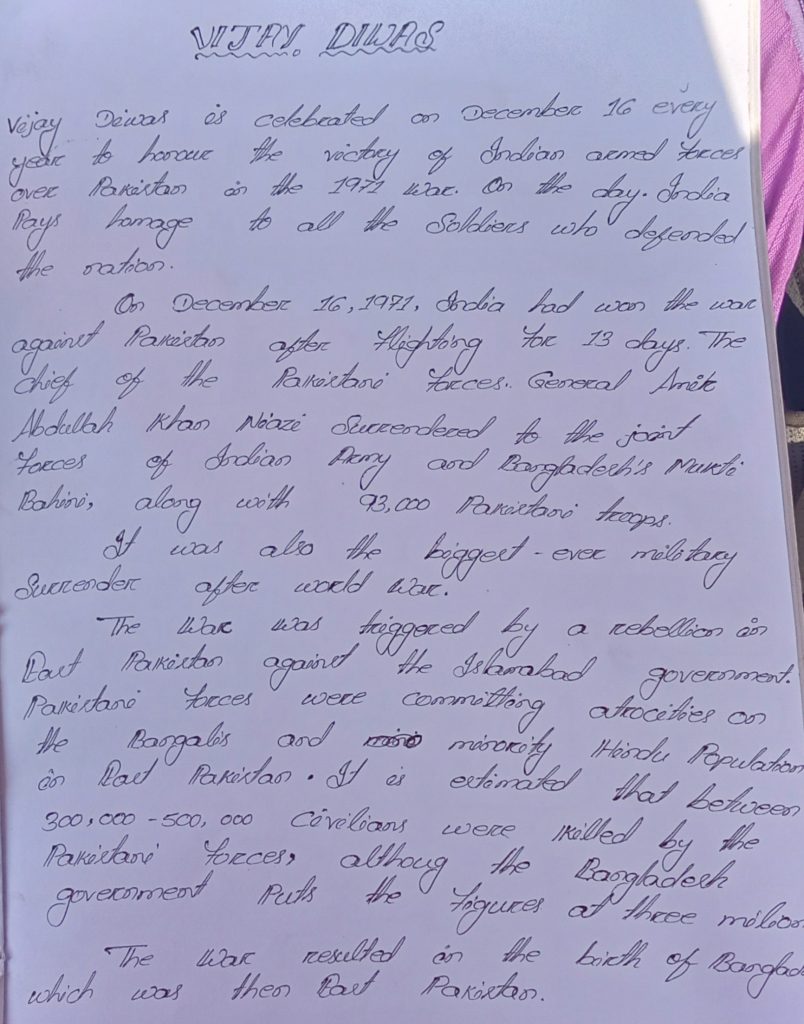 VIJAY DIWAS
Vijay Diwas is celebrated on December 16 every
year to honour the victory of Indian armed forces
over Pakistan in the 1971 War. On the day. India
Pays homage to all the Soldiers who defended
the nation.
On December 16, 1971, India had won the war
against Pakistan after flighting for 13 days. The
chief of the Pakistani forces. General Amir
Abdullah Khan Niazi Surrendered to the joint
forces of Indian Army and Bangladesh's Mukti
Bahini, along with 93,000 Pakistani troops.
It was also the biggest - ever military
Surrender after world War.
The War was triggered by a rebellion in
East Pakistan against the Islamabad government.
Pakistani forces were committing atrocities on
the Bangalis and minority Hindu Population
in East Pakistan. It is estimated that between
300,000 - 500,000 Civilians were killed by the
Pakistani forces, althoug the Bangladesh
government Puts the figures at three milion
The War resulted in the birth of Banglad
which was then East Pakistan.